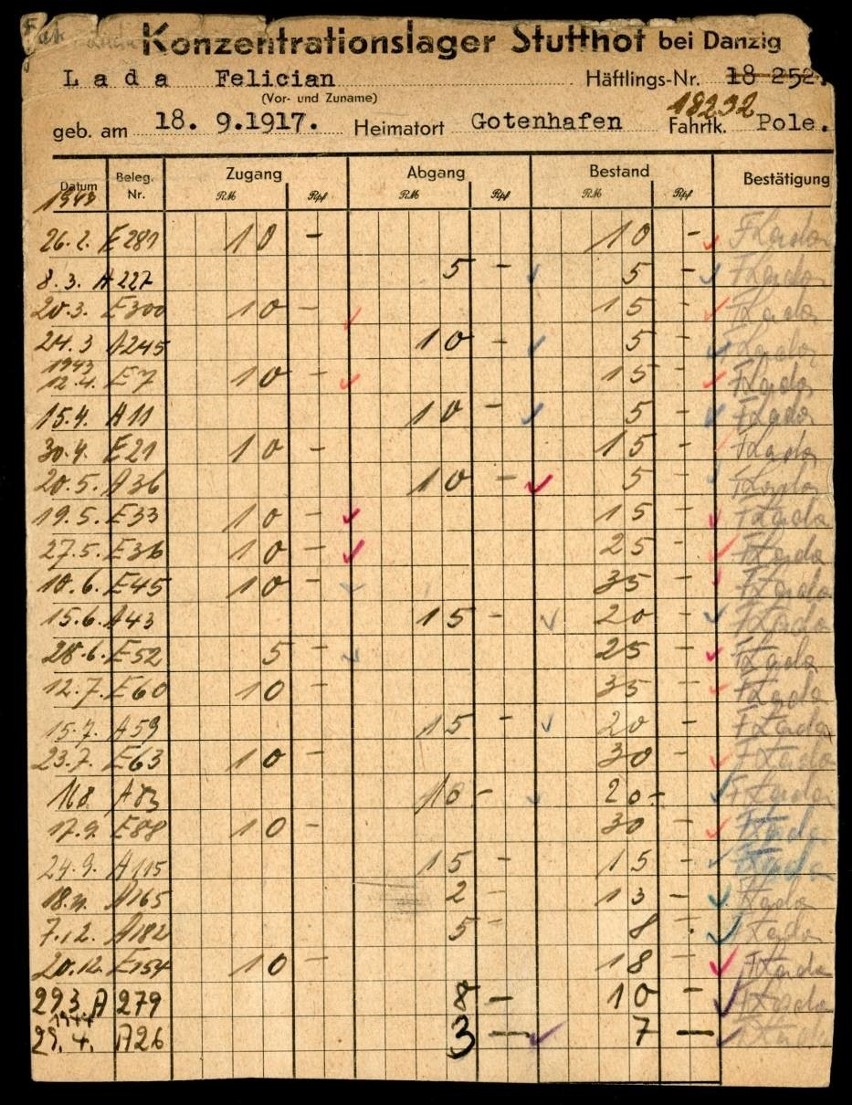 Konzentrationslager Stutthof bei Danzig
Lada Felician Häftlings-Nr. 18 252.
(Vor- und Zuname) 18232
geb. am 18. 9.1917. Heimatort Gotenhafen Fahrtk. Pole.
Datum Beleg. Nr. Zugang Abgang Bestand Bestätigung
1943 RM Rpf RM Rpf RM Rpf
26.2. E281 10 - 10 - FLada
8.3. A227 5 - 5 - FLada
20.3. E300 10 - 15 - FLada
24.3 A245 10 - 5 - FLada
1943
12.4. E7 10 - 15 - FLada
15.4. A11 10 - 5 - FLada
30.4. E21 10 - 15 - FLada
20.5. A36 10 - 5 - FLada
19.5. E33 10 - 15 - FLada
27.5. E36 10 - 25 - FLada
10.6. E45 10 - 35 - FLada
15.6. A43 15 - 20 - FLada
28.6. E52 5 - 25 - FLada
12.7. E60 10 - 35 - FLada
15.7. A59 15 - 20 - FLada
23.7. E63 10 - 30 - FLada
16.8. A83 10 - 20 - FLada
17.9. E88 10 - 30 - FLada
24.9. A115 15 - 15 - FLada
18.11. A165 2 - 13 - FLada
7.12. A182 5 - 8 - FLada
20.12. E154 10 - 18 - FLada
29.3. A279 8 - 10 - FLada
1944
25.4. A26 3 - 7 - FLada